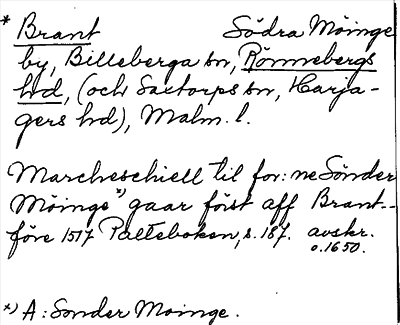 * Brant Södra Möinge
by, Billeberga sn, Rönnebergs
hd, (och Saxtorps sn, Harja-
gers hd), Malm. l.
Marcheschiell til for:ne Sönder
Möinge *) gaar först aff Brant--
före 1517 Palteboken, s. 187. avskr.
o. 1650.
*) A: Sonder Moinge.